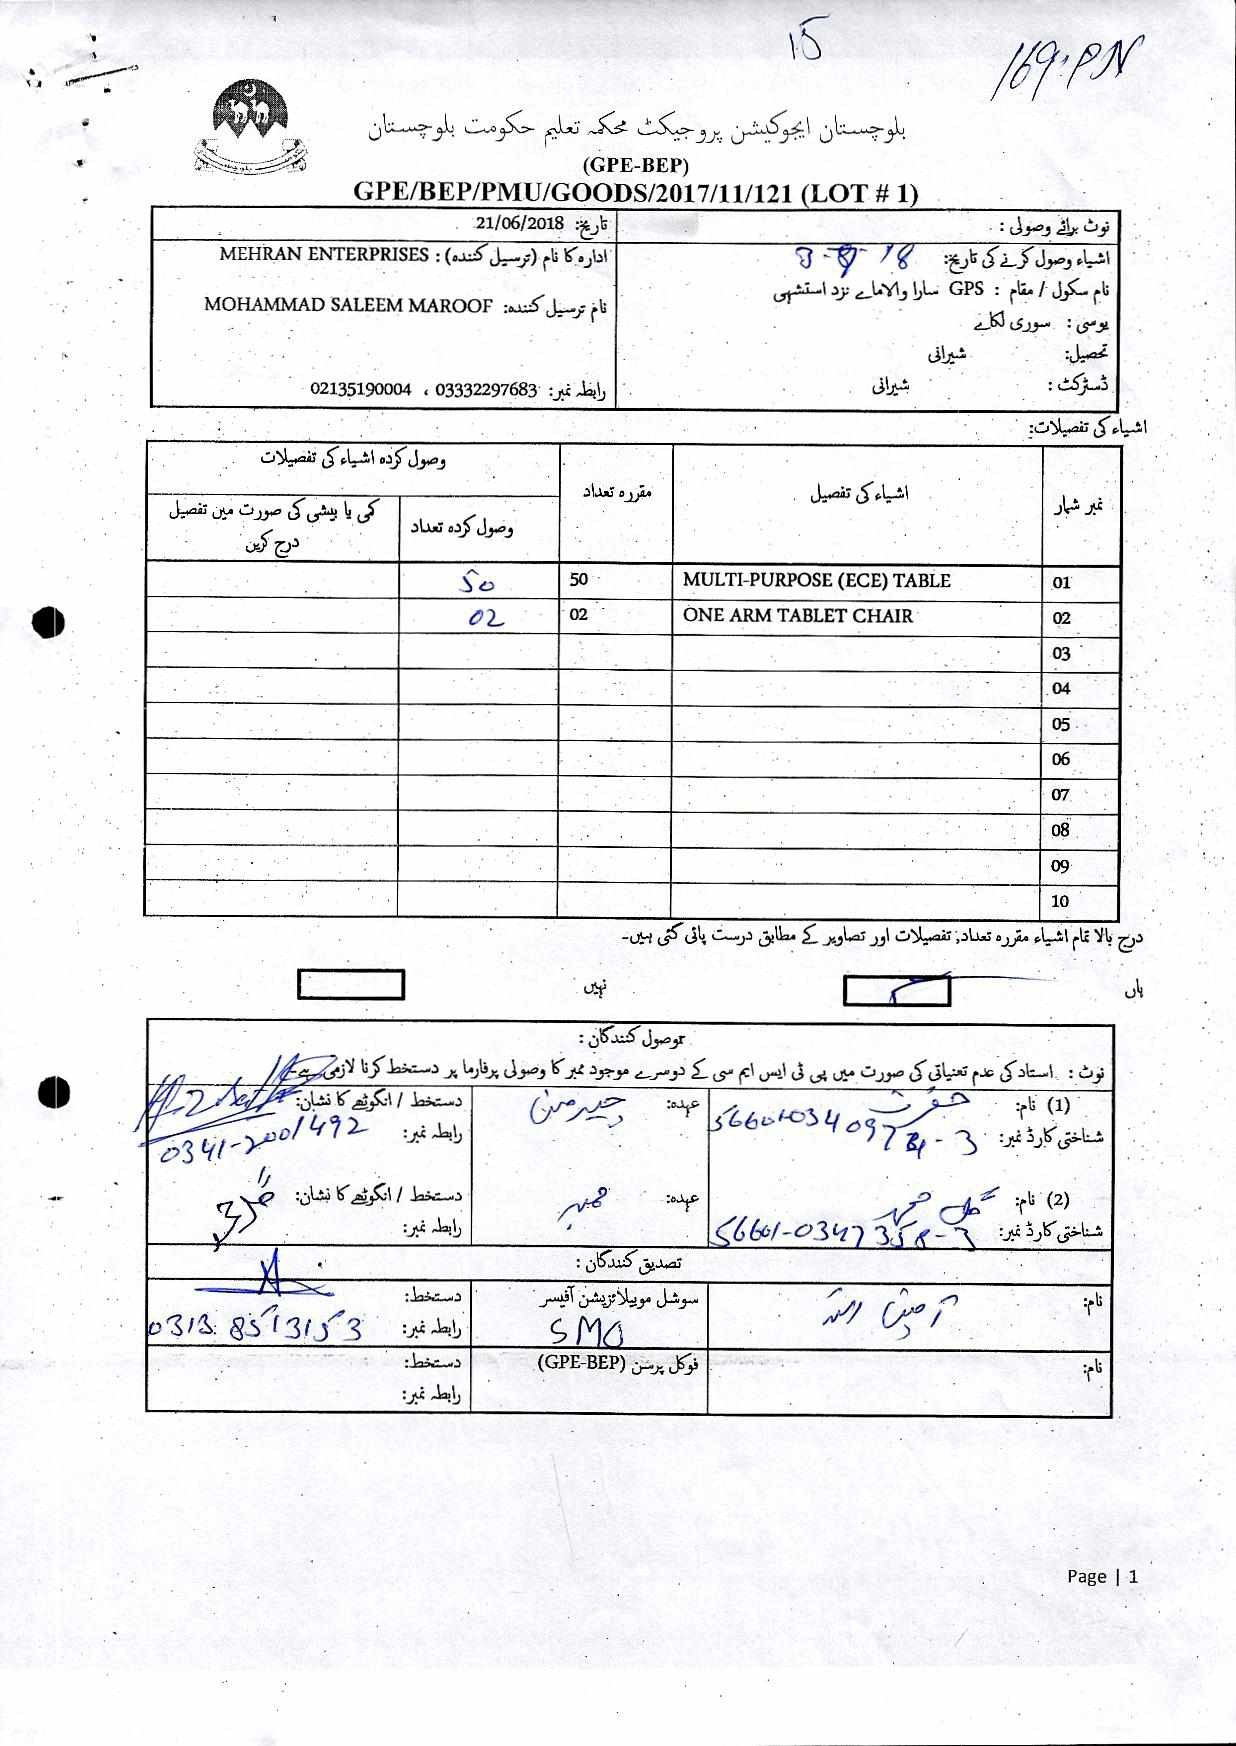 15
169:PN
بلوچستان ایجوکیشن پروجیکٹ محکمہ تعلیم حکومت بلوچستان
(GPE-BEP)
GPE/BEP/PMU/GOODS/2017/11/121 (LOT # 1)
نوٹ برائے وصولی :
تاریخ: 21/06/2018
اشیاء وصول کرنے کی تاریخ:
ادارہ کا نام (ترسیل کنندہ) : MEHRAN ENTERPRISES
نام سکول / مقام : GPS سارا والاماے نزد استشہی
نام ترسیل کنندہ: MOHAMMAD SALEEM MAROOF
یوسی : سوری لکاے
تحصیل: شیرانی
ڈسٹرکٹ : شیرانی
رابطہ نمبر: 03332297683 ، 02135190004
اشیاء کی تفصیلات:
نمبر شمار اشیاء کی تفصیل مقررہ تعداد وصول کردہ اشیاء کی تفصیلات
وصول کردہ تعداد کمی یا بیشی کی صورت میں تفصیل درج کریں
01 MULTI-PURPOSE (ECE) TABLE 50 50
02 ONE ARM TABLET CHAIR 02 02
03
04
05
06
07
08
09
10
درج بالا تمام اشیاء مقررہ تعداد, تفصیلات اور تصاویر کے مطابق درست پائی گئی ہیں۔
ہاں نہیں
موصول کنندگان :
نوٹ : استاد کی عدم تعنیاتی کی صورت میں پی ٹی ایس ایم سی کے دوسرے موجود ممبر کا وصولی پرفارما پر دستخط کرنا لازمی ہے۔
(1) نام: عہدہ: چیرمین دستخط / انگوٹھے کا نشان:
شناختی کارڈ نمبر: رابطہ نمبر: 0341-2001492
(2) نام: گل محمد عہدہ: ممبر دستخط / انگوٹھے کا نشان:
شناختی کارڈ نمبر: 56601-0347358-3 رابطہ نمبر:
تصدیق کنندگان :
نام: سوشل موبیلائزیشن آفیسر دستخط:
SMO رابطہ نمبر: 0313 8513153
نام: فوکل پرسن (GPE-BEP) دستخط:
رابطہ نمبر:
Page | 1